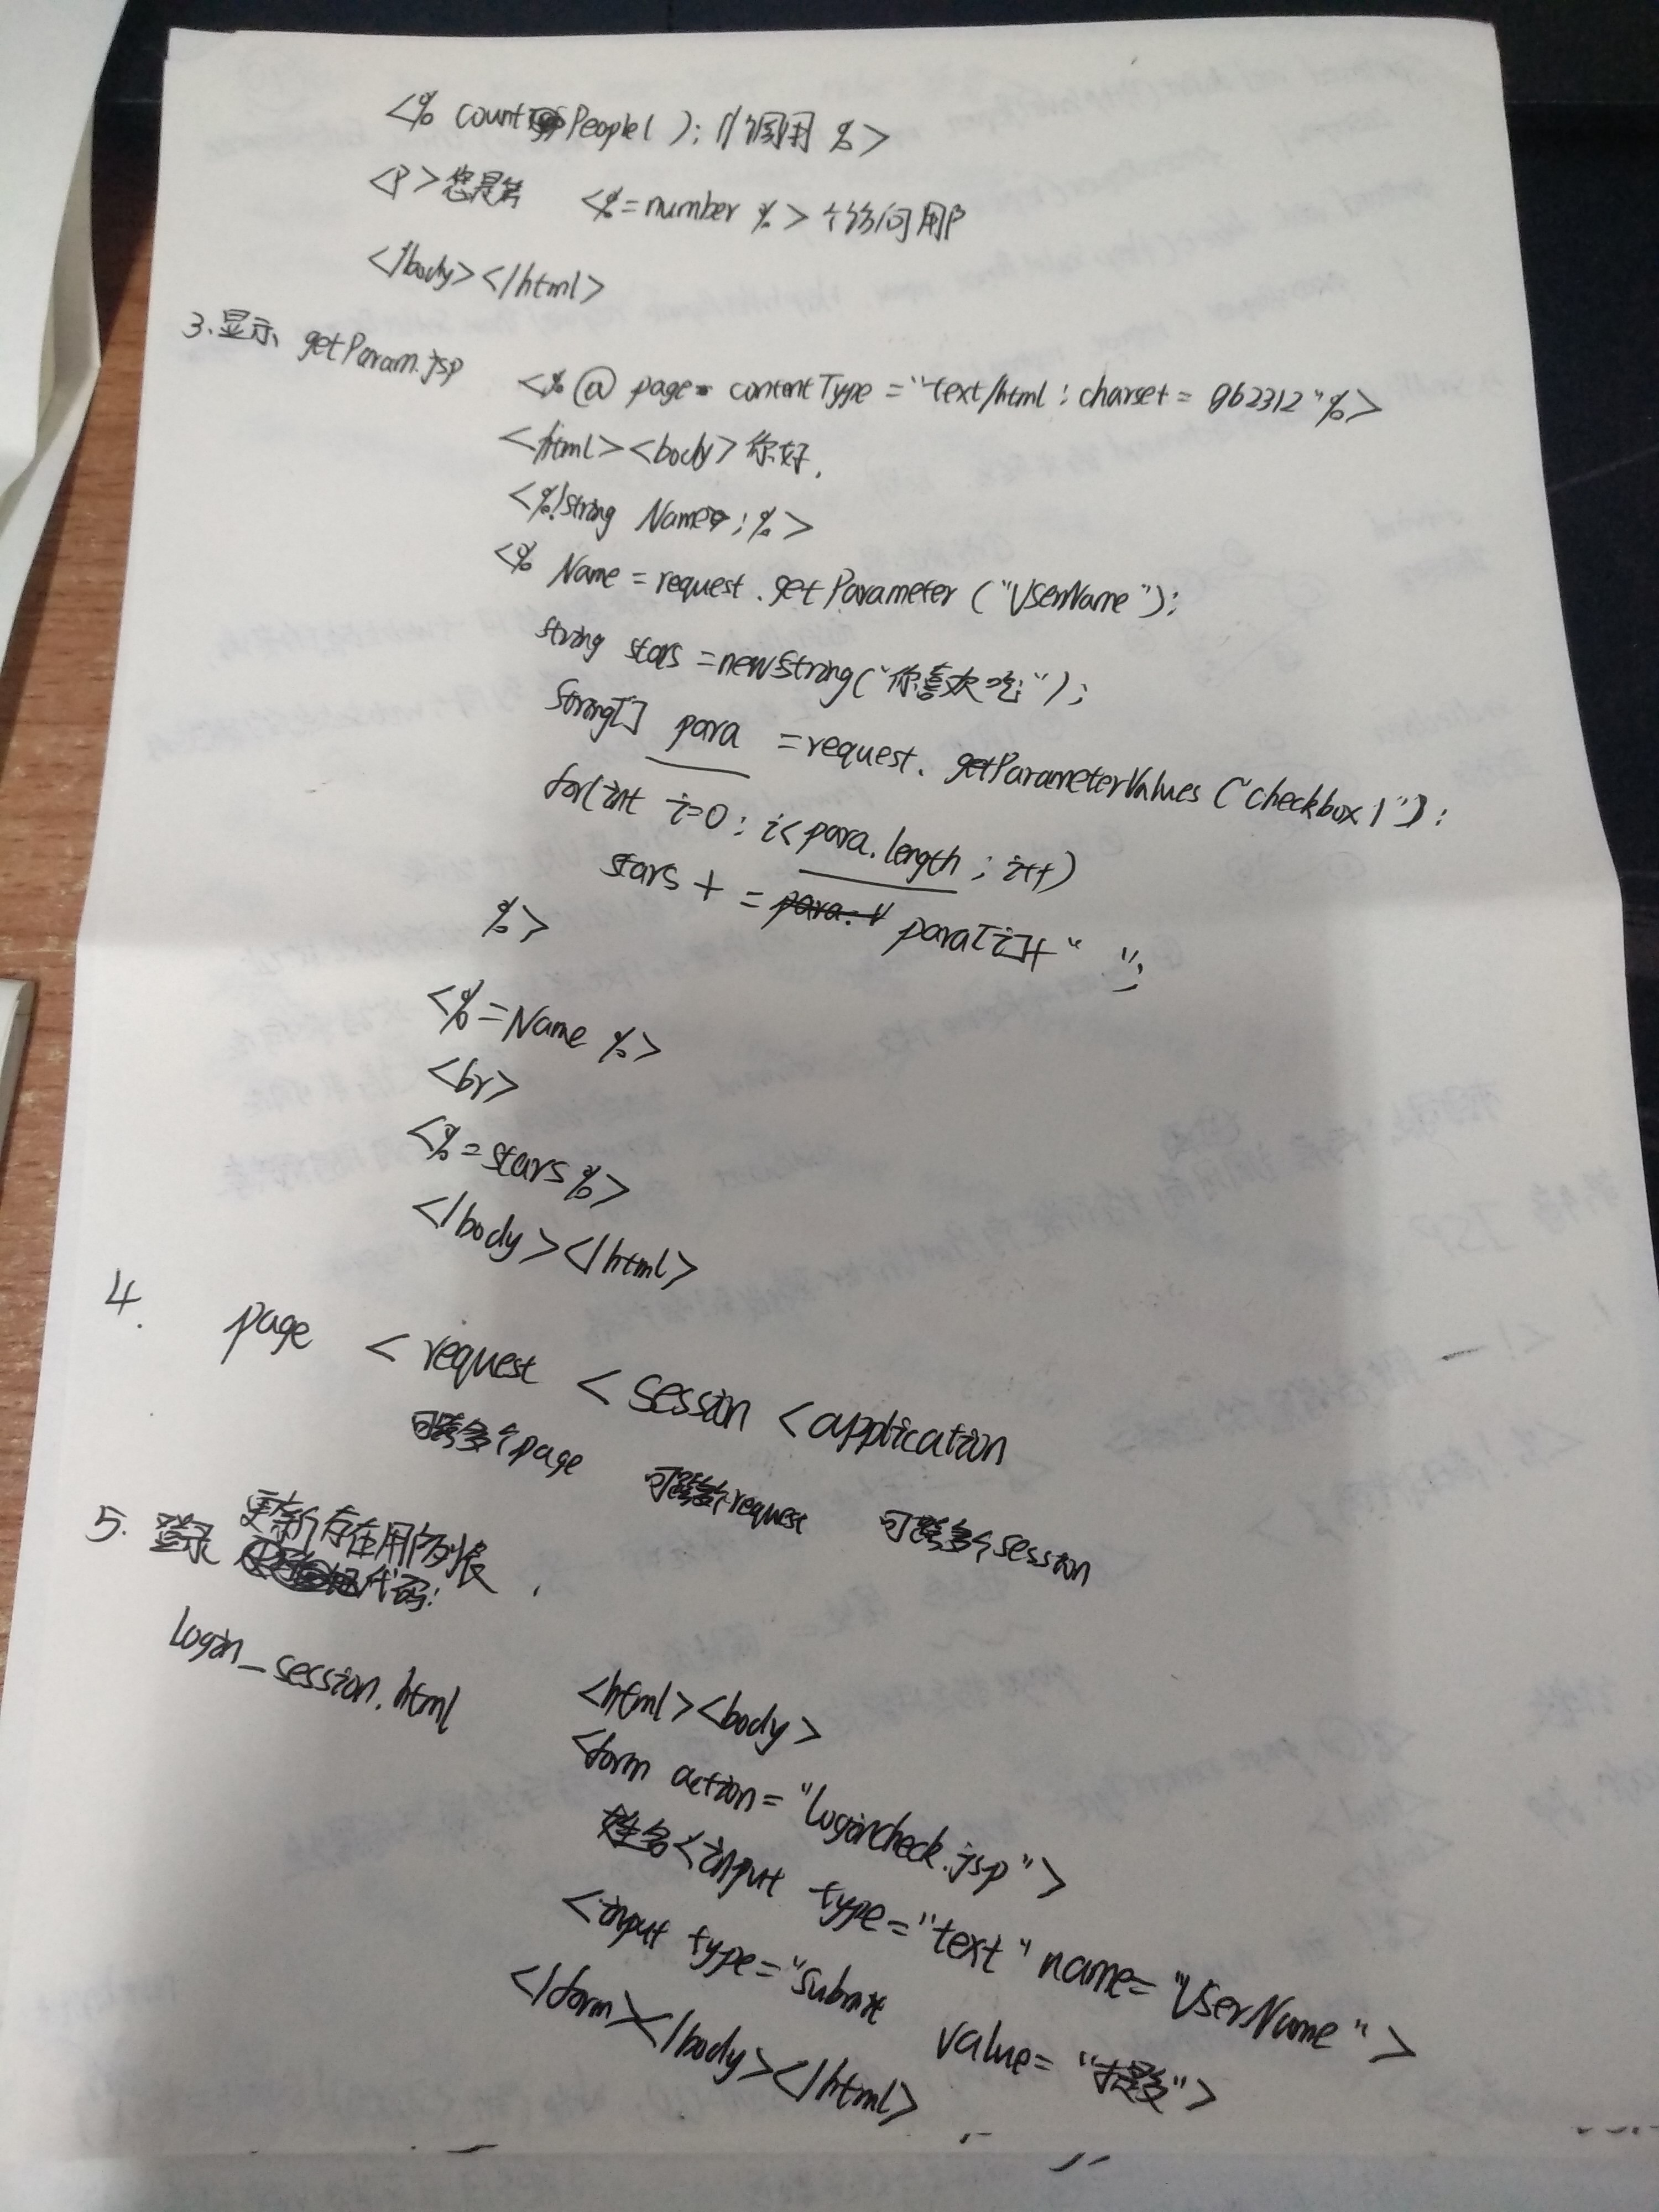 <% countPeople( ); //调用 %>
<P>您是第 <%=number %>个访问用户
</body></html>
3.显示 getParam.jsp
<%@ page contentType="text/html ; charset = gb2312"%>
<html><body>你好,
<%!string Name;%>
<% Name = request.getParameter ("UserName");
string stars =newString("你喜欢吃");
String[] para =request. getParameterValues ("checkbox1");
for(int i=0; i<para.length ; i++)
stars += para[i]+" ";
%>
<%=Name %>
<br>
<%=stars%>
</body></html>
4. page < request < session < application
可跨多个page 可跨多个request 可跨多个session
5. 登录 更新存在用户列表.
代码:
login_session.html
<html><body>
<form action="logincheck.jsp">
姓名<input type="text" name="UserName">
<input type="submit value="提交">
</form></body></html>